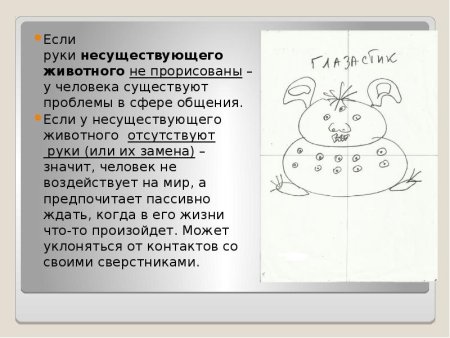 Если
руки несуществующего
животного не прорисованы –
у человека существуют
проблемы в сфере общения.
Если у несуществующего
животного отсутствуют
руки (или их замена) –
значит, человек не
воздействует на мир, а
предпочитает пассивно
ждать, когда в его жизни
что-то произойдет. Может
уклоняться от контактов со
своими сверстниками.
ГЛАЗАСТИК